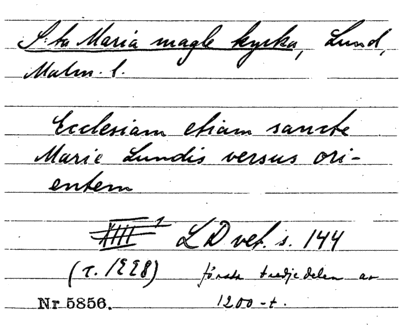 S:ta Maria magle kyrka, Lund,
Malm. l.
Ecclesiam etiam sancte
Marie Lundis versus ori-
entem
LD vet. s. 144
(t. 1228) första tredjedelen av
1200-t.
Nr 5856.